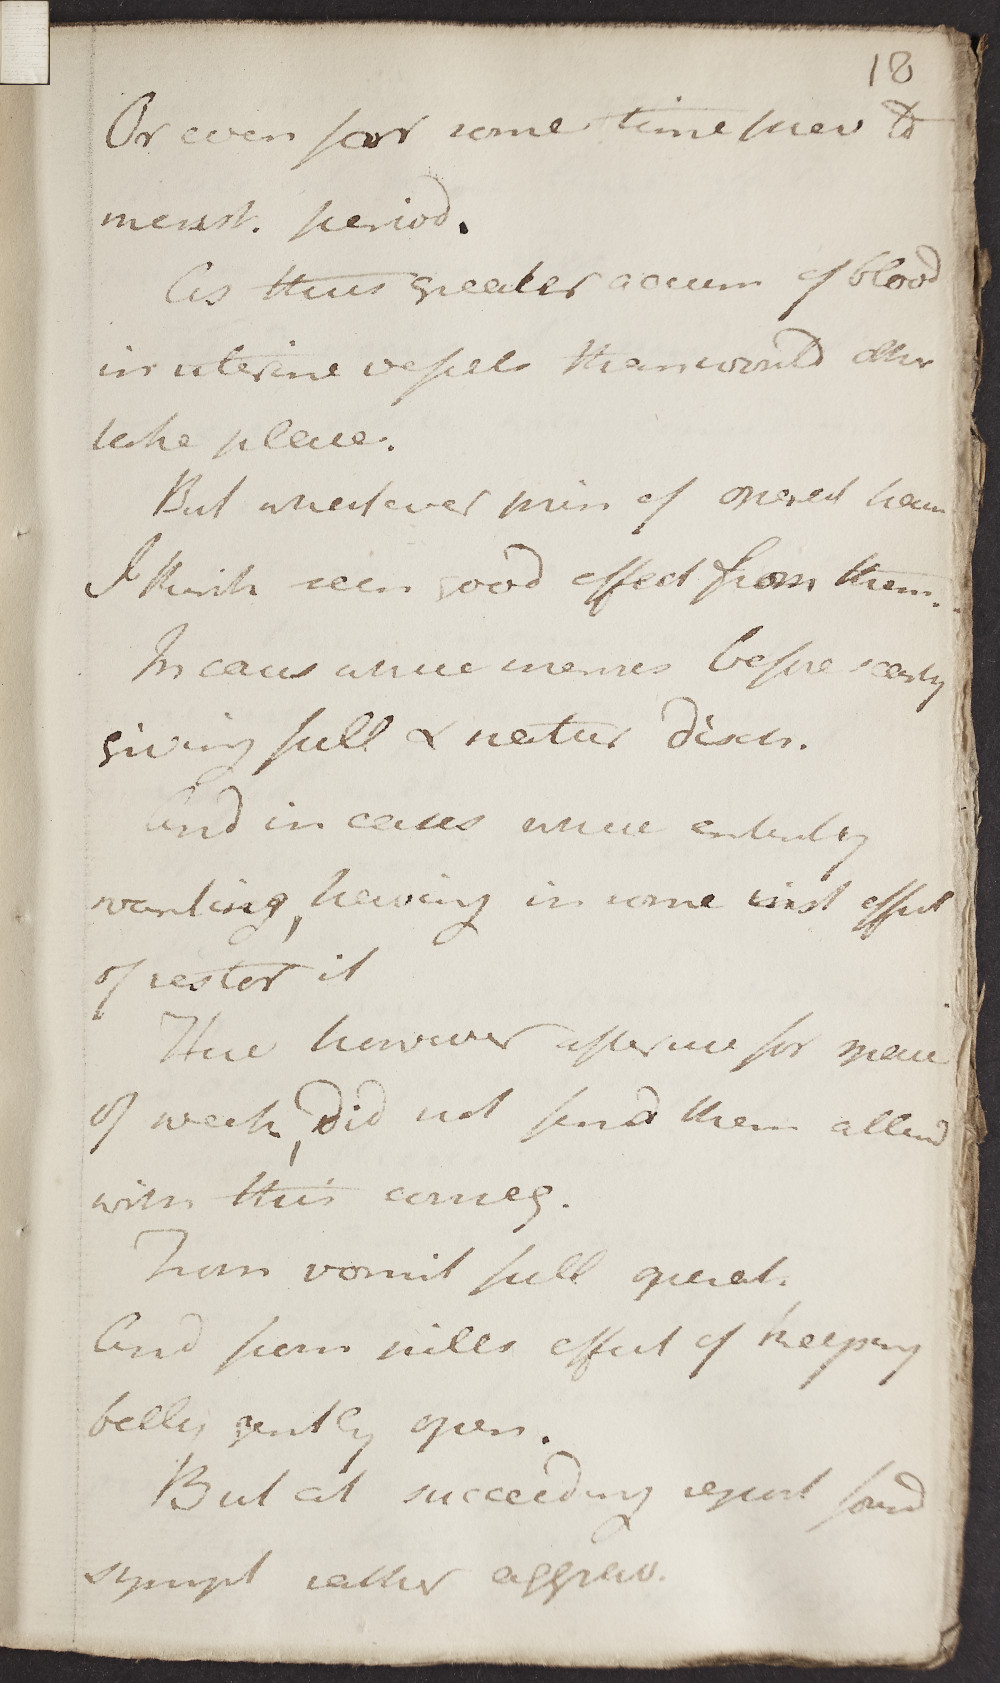 18
Or even for some time prev to
menst. period.
As thus greater accum of blood
in uterine vessels than would other
take place.
But whatever prin of operat have
I think seen good effect from them.
In cases where menses before scanty
giving full & natur disch.
And in cases where entirely
wanting, having in some inst effect
of restor it
Here however after use for space
of week, did not find them attend
with this conseq.
From vomit full operat.
And from pills effect of keeping
belly gently open.
But at succeeding report found
sympt rather aggrav.